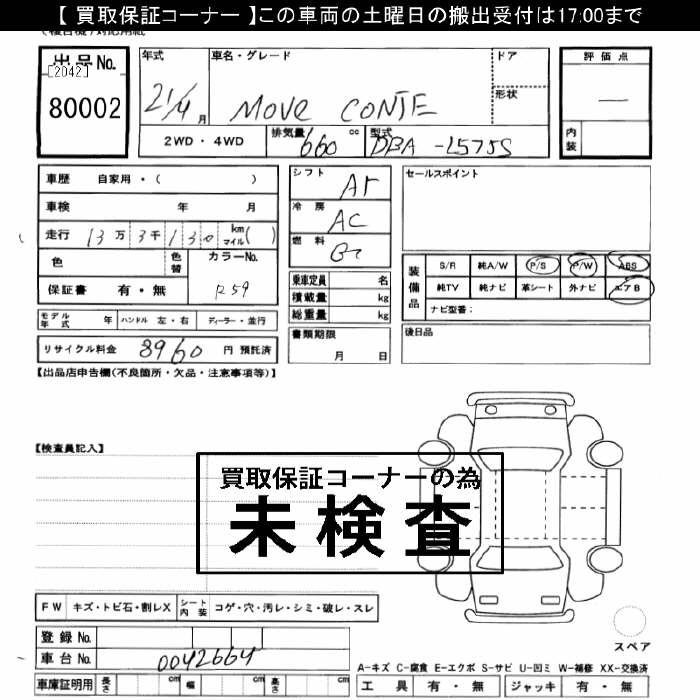 【 買取保証コーナー 】この車両の土曜日の搬出受付は17:00まで
出品No.
[2042]
80002
年式
21/4 月
車名・グレード
MOVE CONTE
ドア
形状
評価点
—
内装
2WD・4WD
排気量 660 cc
型式 DBA-L575S
車歴 自家用・( )
車検 年 月
走行 13万 3千 130 km マイル( )
色
色替
カラーNo.
R59
保証書 有・無
シフト AT
冷房 AC
燃料
乗車定員 名
積載量 kg
総重量 kg
書類期限
月 日
セールスポイント
装備品
S/R 純A/W P/S P/W ABS
純TV 純ナビ 革シート 外ナビ エアB
ナビ型番:
後日品
モデル年式 年 ハンドル 左・右 ディーラー・並行
リサイクル料金 8960 円 預託済
【出品店申告欄(不良箇所・欠品・注意事項等)】
【検査員記入】
買取保証コーナーの為
未検査
FW キズ・トビ石・割レX シート内装 コゲ・穴・汚レ・シミ・破レ・スレ
登録No.
車台No. 0042664
車庫証明用 長さ cm 幅 cm 高さ cm
スペア
A-キズ C-腐食 E-エクボ S-サビ U-凹ミ W-補修 XX-交換済
工具 有・無 ジャッキ 有・無